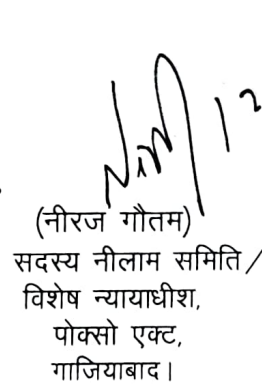 (नीरज गौतम)
सदस्य नीलाम समिति /
विशेष न्यायाधीश,
पोक्सो एक्ट,
गाजियाबाद।